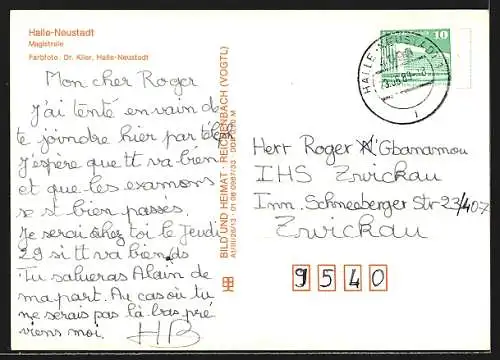 Halle-Neustadt
Magistrale
Farbfoto: Dr. Klier, Halle-Neustadt
Mon cher Roger
J'ai tenté en vain de
te joindre hier par télé
J'éspère que tt va bien
et que les examens
se st bien passés.
Je serai chez toi le Jeudi
29 si tt va bien ds
Tu salueras Alain de
ma part. Au cas où tu
ne serais pas là-bas pré
viens moi. HB
BILD UND HEIMAT · REICHENBACH (VOGTL)
HALLE-NEUSTADT 1
10
Herr Roger Gbanamou
IHS Zwickau
Inn. Schneeberger Str 23/407
Zwickau
9540